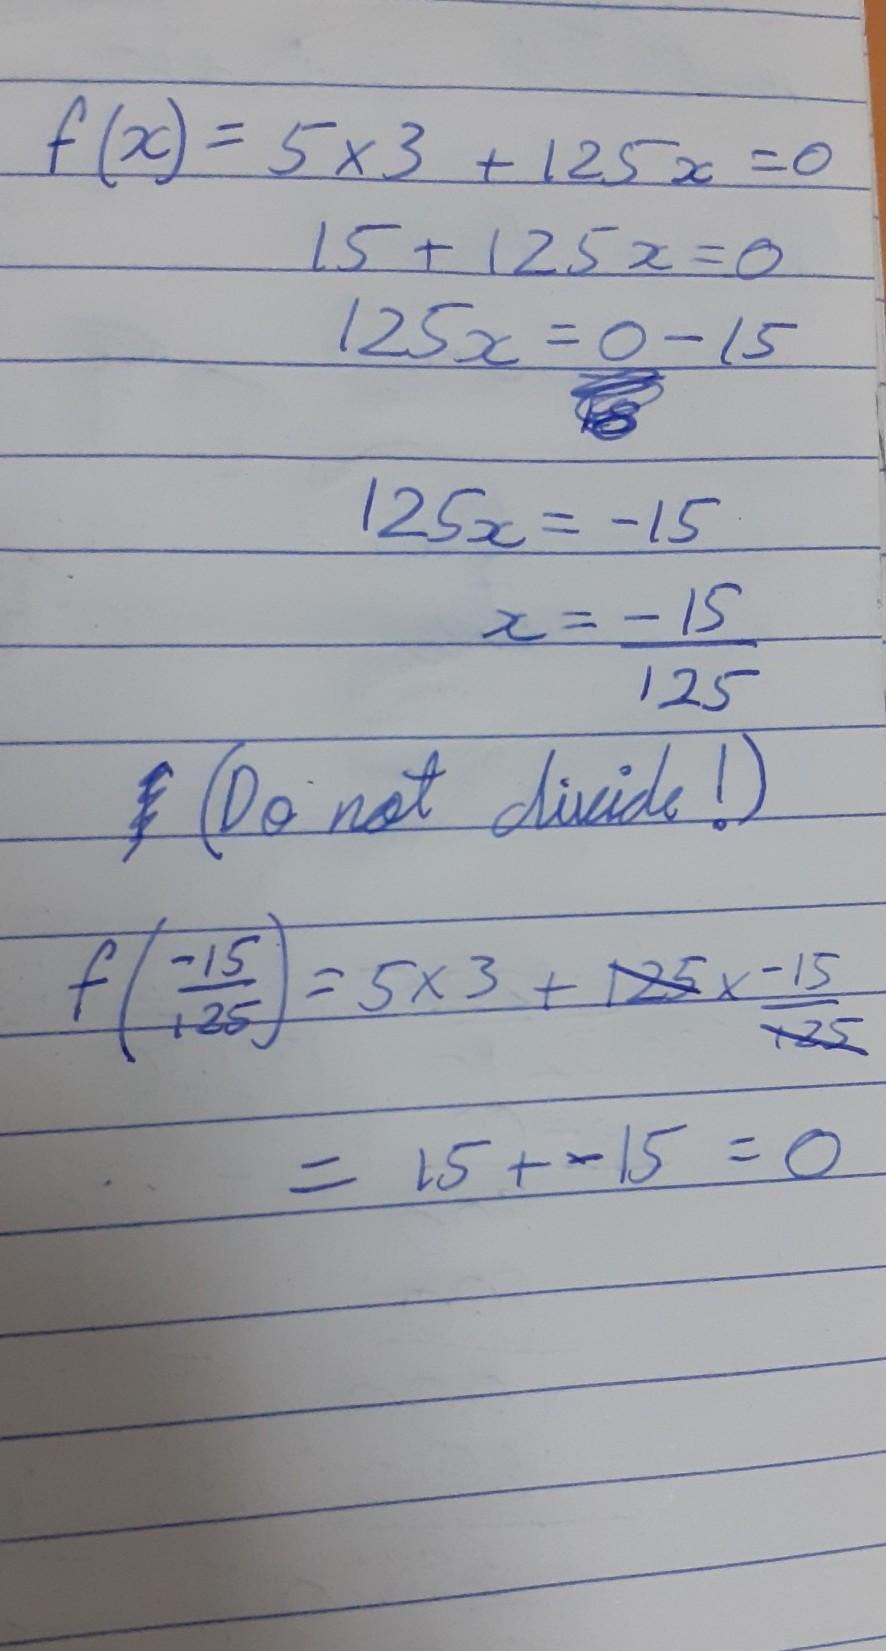 f(x) = 5 × 3 + 125x = 0
15 + 125x = 0
125x = 0 - 15
125x = -15
x = -15
125
(Do not divide!)
f(-15/125) = 5 × 3 + 125 × -15/125
= 15 + -15 = 0